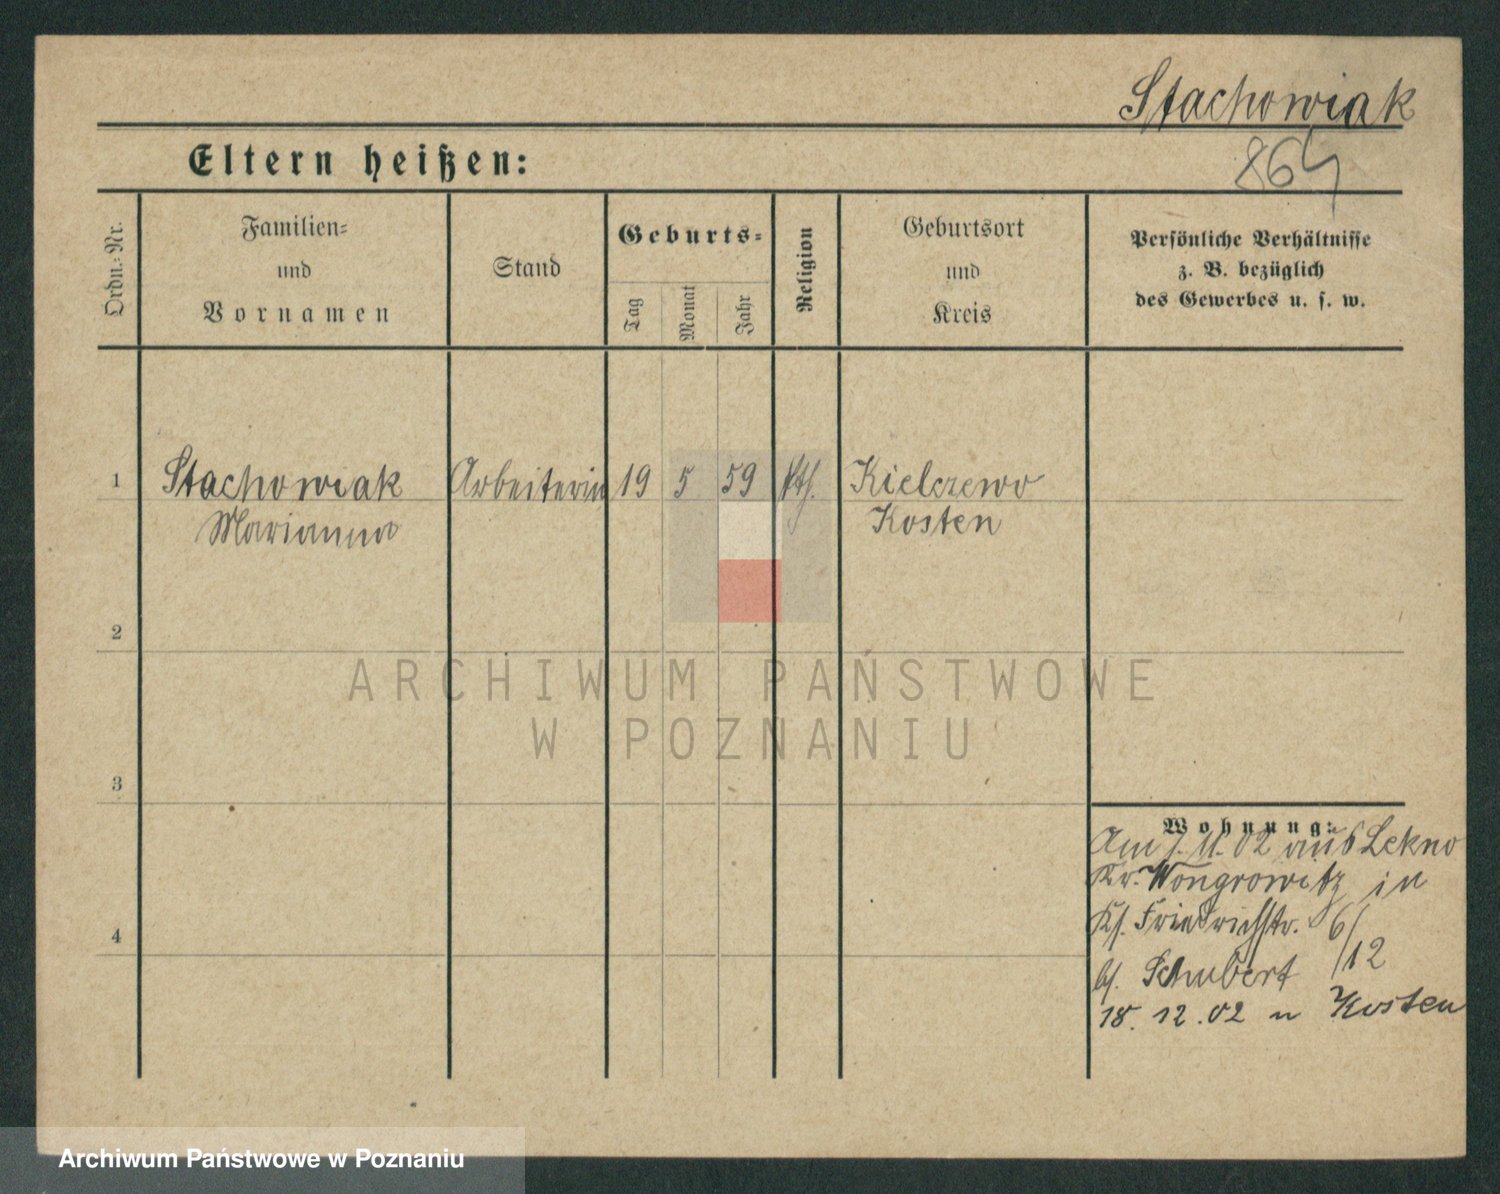 Stachowiak
Eltern heißen:
Ordn.-Nr.
Familien-
und
Vornamen
Stand
Geburts-
Tag
Monat
Jahr
Religion
Geburtsort
und
Kreis
Persönliche Verhältnisse
z. B. bezüglich
des Gewerbes u. s. w.
1 Stachowiak Arbeiterin 19 5 59 kth. Kielczewo
Marianna Kosten
2
3
4
Wohnung:
Am 7. 11. 02 aus Lekno
Kr. Wongrowitz in
Friedrichstr. 6/
bs. Schubert /12
18. 12. 02 n Kosten
ARCHIWUM PAŃSTWOWE
W POZNANIU
Archiwum Państwowe w Poznaniu